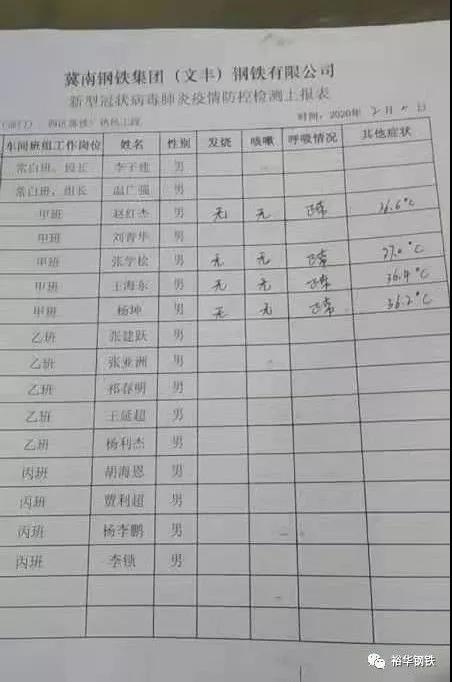 冀南钢铁集团（文丰）钢铁有限公司
新型冠状病毒肺炎疫情防控检测上报表
时间：2020年 2月 日
车间班组工作岗位 姓名 性别 发烧 咳嗽 呼吸情况 其他症状
常白班，段长 李子建 男
常白班，组长 温广强 男
甲班 赵红杰 男 无 无 正常 36.6°C
甲班 刘青华 男
甲班 张学松 男 无 无 正常 37.0°C
甲班 王海东 男 无 无 正常 36.4°C
甲班 杨坤 男 无 无 正常 36.2°C
乙班 张建跃 男
乙班 张亚洲 男
乙班 祁春明 男
乙班 王延超 男
乙班 杨利杰 男
丙班 胡海恩 男
丙班 贾利超 男
丙班 杨李鹏 男
丙班 李锁 男
裕华钢铁